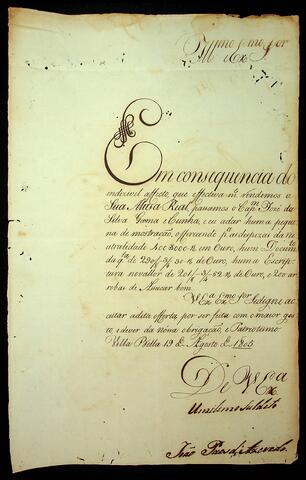 Illmo Smo Snr
Exmo
Em consequencia do
indizivel affecto, que effectivamte. rendemos a
Sua Alteza Real, passamos o Capm. José da
Silva Gama e Cunha, e eu adar huma peque
na demostração, offerecendo pa. as despezas da ne
utralidade em Ouro, hum Documto.
da qta. de de Ouro, huma a Escrip
tura no vallor de de Ouro, e 200 ar
robas de Assucar bom.
VExa. Exmo. Snr. Sedigne ac
ceitar adita offerta, por ser feita com omaior gos
to, e dever da nossa obrigação, e Patriotismo
Villa Bella 19 de Agosto de 1805
De VExa
Umilimo subdito
João Paes de Azevedo